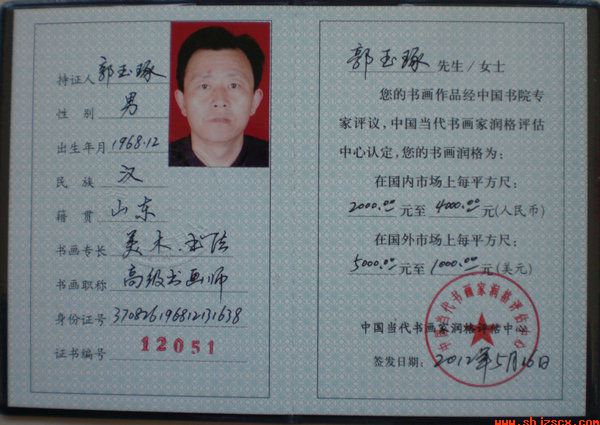 持证人 郭玉琢
性别 男
出生年月 1968.12
民族 汉
籍贯 山东
书画专长 美术.书法
书画职称 高级书画师
身份证号 370826196812131638
证书编号 12051
郭玉琢 先生/女士
您的书画作品经中国书院专
家评议,中国当代书画家润格评估
中心认定,您的书画润格为:
在国内市场上每平方尺:
2000.00 元至 4000.00 元(人民币)
在国外市场上每平方尺:
5000.00 元至 1000.00 元(美元)
中国当代书画家润格评估中心
中国当代书画家润格评估中心
签发日期: 2012年5月16日
www.shjzscx.com